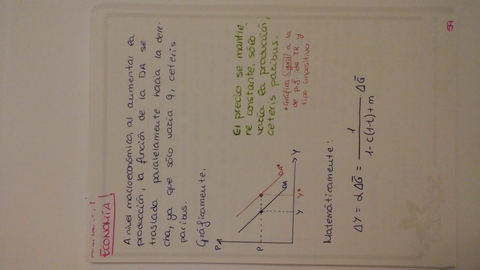 ECONOMÍA
A nivel macroeconómico, al aumentar la
producción, la función de la DA se
traslada paralelamente hacia la dere-
cha, ya que sólo varía q, ceteris
paribus.
Gráficamente.
P
P
DA'
DA
Y
Y*
Y
El precio se mantie
ne constante, sólo
varía la producción,
ceteris paribus.
* Gráfica igual a la
de p.g de TR y
tipo impositivo
Matemáticamente:
ΔY = α ΔG̅ = 1 / 1 - c(1-t) + m ΔG̅